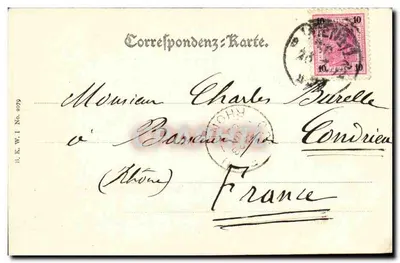 Correspondenz-Karte.
10 10
10 10
Monsieur Charles Burelle
à par Condrieu
(Rhône)
France
B. K. W. I No. 2079
RHONE